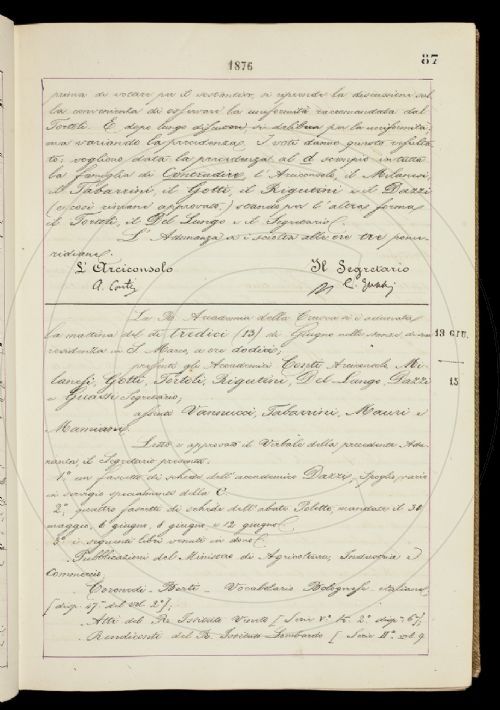 1876
87
prima di votare per il sostantivo, si riprende la discussione sul-
la convenienza di osservare la uniformità raccomandata dal
Tortoli. E dopo lunga discussione, si delibera per la uniformità,
ma variando la precedenza. I voti danno questo resulta-
to: vogliono data la precedenza al d scempio in tutta
la famiglia di Contradire, l'Arciconsolo, il Milanesi,
il Tabarrini, il Gotti, il Rigutini e il Dazzi
(e così rimane approvata;) stando per l'altra forma
il Tortoli, il Del Lungo e il Segretario.
L'Adunanza si è sciolta alle ore tre pome-
ridiane.
L'Arciconsolo
Il Segretario
A. Conti
C. Guasti
La R. Accademia della Crusca si è adunata
la mattina del dì tredici (13) di Giugno nelle stanze di sua
residenza in S. Marco, a ore dodici,
13 GIU.
presenti gli Accademici Conti Arciconsolo, Mi-
lanesi, Gotti, Tortoli, Rigutini, Del Lungo, Dazzi
15
e Guasti Segretario,
assenti Vannucci, Tabarrini, Mauri e
Mamiani.
Letto e approvato il Verbale della precedente Adu-
nanza, il Segretario presenta:
1.° un fascetto di schede dell'accademico Dazzi, Spogli varii
in servigio specialmente della C.
2.° quattro fascetti di schede dell'abate Poletto, mandate il 30
maggio, 6 giugno, 8 giugno e 12 giugno.
3.° i seguenti libri venuti in dono:
Pubblicazioni del Ministero di Agricoltura, Industria e
Commercio.
Coronedi-Berti - Vocabolario Bolognese italiano
[disp. 47.ª del vol. 2.°];
Atti del R. Istituto Veneto [Serie V.ª t. 2.° disp.ª 6.ª];
Rendiconti del R. Istituto Lombardo [Serie II.ª vol. 9